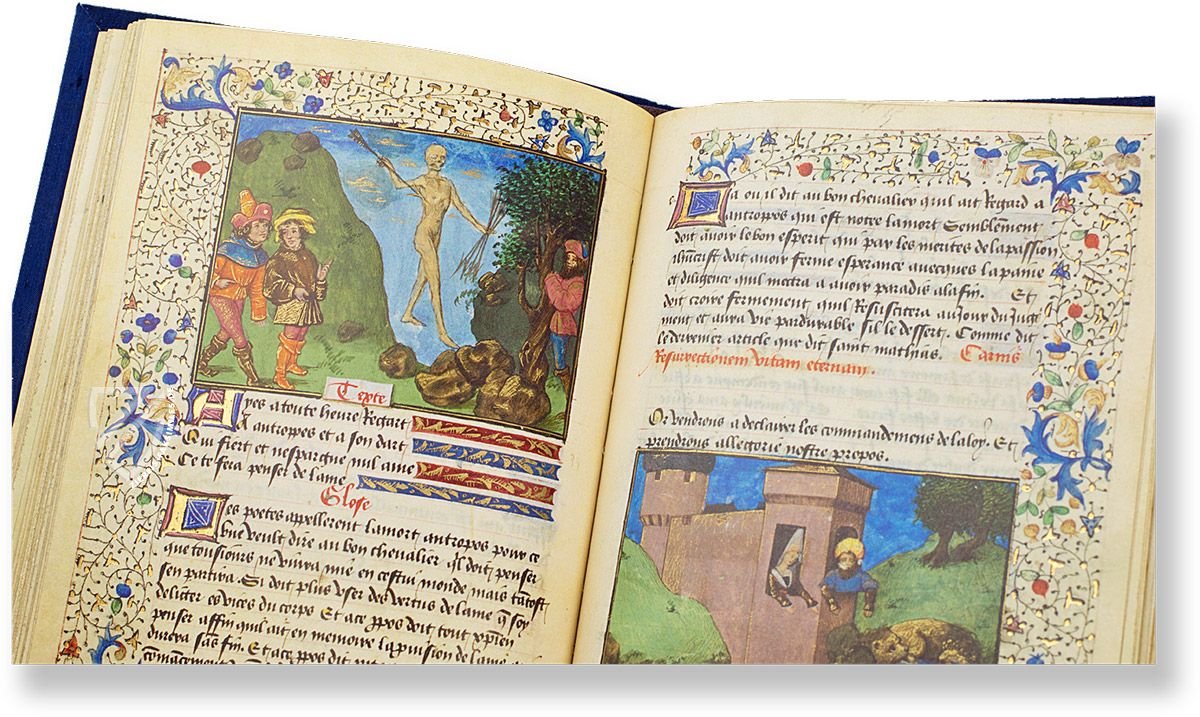 Texte
Ayes a toute heure Regart
A antropes et a son dart
Qui fiert et nespargne nul ame
Ce te fera penser de lame
Glose
Les poetes appellerent la mort antropos pour ce
que veult dire au bon chevalier ql doit penser
que tousiours ne vivra mie en cestui monde mais tantost
sen partira. Si doit plus user des vertus de lame q soy
deliter es vices du corps Et ace ppos doit tout xpien
penser affin quil ait en memoire la pvision de lame
durera sans fin. Et ace ppos dit
La ou il dit au bon chevalier quil ait Regard a
antropos qui est notre la mort Semblement
doit avoir le bon esperit qui par les merites de la passion
ihucrist doit avoir ferme esperance avecques la paine
et diligence quil mectra a avoir paradis ala fin. Et
doit croire fermement quil Resuscitera au Jour du Juge
ment et aura vie pardurable sil le dessert. Comme dit
le derrenier article que dit saint mathias. Carnis
Resurrectionem vitam eternam.
Or vendrons a declairer les commandemens de la loy. Et
prendrons allegorie nostre propos.